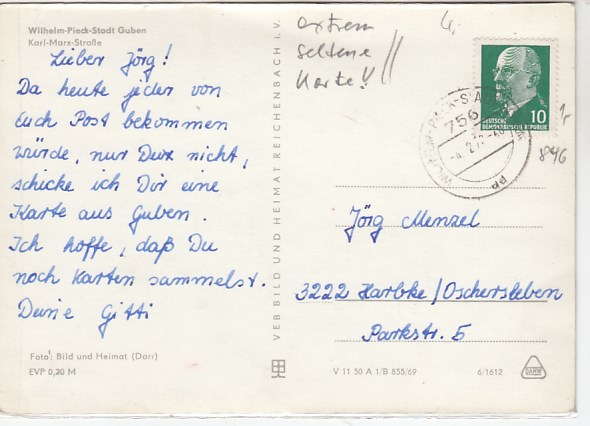 Wilhelm-Pieck-Stadt Guben
Karl-Marx-Straße
Lieber Jörg!
Da heute jeder von
Euch Post bekommen
würde, nur Du nicht,
schicke ich Dir eine
Karte aus Guben.
Ich hoffe, daß Du
noch Karten sammelst.
Deine Gitti
Foto: Bild und Heimat (Darr)
EVP 0,20 M
VEB BILD UND HEIMAT REICHENBACH i. V.
extrem
seltene
Karte!!
10
DEUTSCHE
DEMOKRATISCHE REPUBLIK
WILHELM-PIECK-STADT
756
846
Jörg Menzel
3222 Harbke/Oschersleben
Parkstr. 5
V 11 50 A 1/B 855/69
6/1612